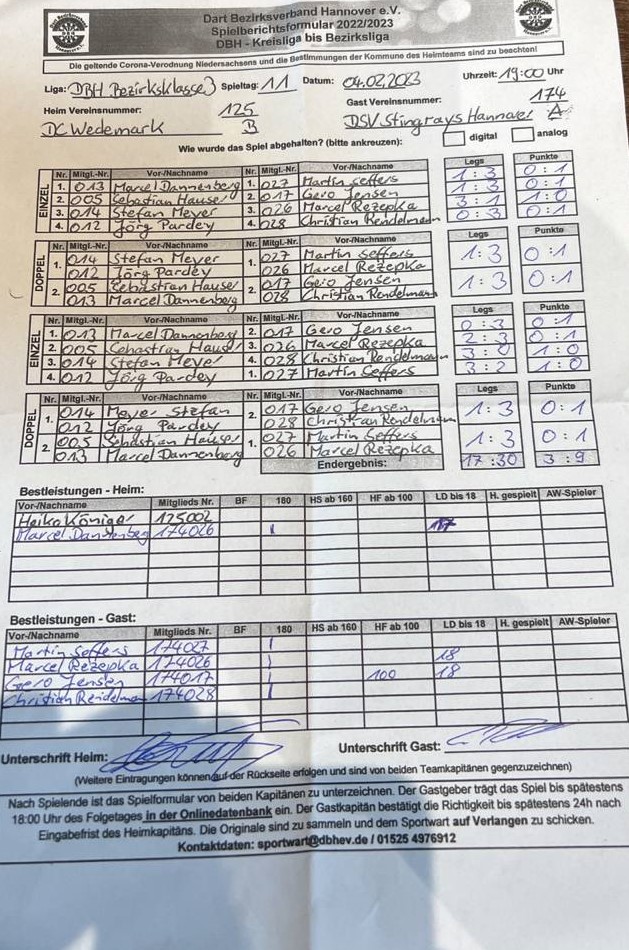 Dart Bezirksverband Hannover e.V.
Spielberichtsformular 2022/2023
DBH - Kreisliga bis Bezirksliga
Die geltende Corona-Verodnung Niedersachsens und die Bestimmungen der Kommune des Heimteams sind zu beachten!
Liga: DBH Bezirksklasse 3 Spieltag: 11 Datum: 04.02.2023 Uhrzeit: 19:00 Uhr
Heim Vereinsnummer: 125 Gast Vereinsnummer: 174
DC Wedemark B DSV Stingrays Hannover A
Wie wurde das Spiel abgehalten? (bitte ankreuzen): digital analog
EINZEL Nr. Mitgl.-Nr. Vor-/Nachname Nr. Mitgl.-Nr. Vor-/Nachname Legs Punkte
1. 013 Marcel Dannenberg 1. 027 Martin Seffers 1:3 0:1
2. 005 Sebastian Hauser 2. 017 Gero Jensen 1:3 0:1
3. 014 Stefan Meyer 3. 026 Marcel Rezepka 3:1 1:0
4. 012 Jörg Pardey 4. 028 Christian Rendelmann 0:3 0:1
DOPPEL Nr. Mitgl.-Nr. Vor-/Nachname Nr. Mitgl.-Nr. Vor-/Nachname Legs Punkte
1. 014 Stefan Meyer 1. 027 Martin Seffers 1:3 0:1
012 Jörg Pardey 026 Marcel Rezepka
2. 005 Sebastian Hauser 2. 017 Gero Jensen 1:3 0:1
013 Marcel Dannenberg 028 Christian Rendelmann
EINZEL Nr. Mitgl.-Nr. Vor-/Nachname Nr. Mitgl.-Nr. Vor-/Nachname Legs Punkte
1. 013 Marcel Dannenberg 2. 017 Gero Jensen 0:3 0:1
2. 005 Sebastian Hauser 3. 026 Marcel Rezepka 2:3 0:1
3. 014 Stefan Meyer 4. 028 Christian Rendelmann 3:0 1:0
4. 012 Jörg Pardey 1. 027 Martin Seffers 3:2 1:0
DOPPEL Nr. Mitgl.-Nr. Vor-/Nachname Nr. Mitgl.-Nr. Vor-/Nachname Legs Punkte
1. 014 Meyer Stefan 2. 017 Gero Jensen 1:3 0:1
012 Jörg Pardey 028 Christian Rendelmann
2. 005 Sebastian Hauser 1. 027 Martin Seffers 1:3 0:1
013 Marcel Dannenberg 026 Marcel Rezepka
Endergebnis: 17:30 3:9
Bestleistungen - Heim:
Vor-/Nachname Mitglieds Nr. BF 180 HS ab 160 HF ab 100 LD bis 18 H. gespielt AW-Spieler
Heiko Königer 125002
Marcel Dannenberg 174026 1
Bestleistungen - Gast:
Vor-/Nachname Mitglieds Nr. BF 180 HS ab 160 HF ab 100 LD bis 18 H. gespielt AW-Spieler
Martin Seffers 174027 1
Marcel Rezepka 174026 1 18
Gero Jensen 174017 1 100 18
Christian Rendelmann 174028 1
Unterschrift Heim: Unterschrift Gast:
(Weitere Eintragungen können auf der Rückseite erfolgen und sind von beiden Teamkapitänen gegenzuzeichnen)
Nach Spielende ist das Spielformular von beiden Kapitänen zu unterzeichnen. Der Gastgeber trägt das Spiel bis spätestens
18:00 Uhr des Folgetages in der Onlinedatenbank ein. Der Gastkapitän bestätigt die Richtigkeit bis spätestens 24h nach
Eingabefrist des Heimkapitäns. Die Originale sind zu sammeln und dem Sportwart auf Verlangen zu schicken.
Kontaktdaten: sportwart@dbhev.de / 01525 4976912